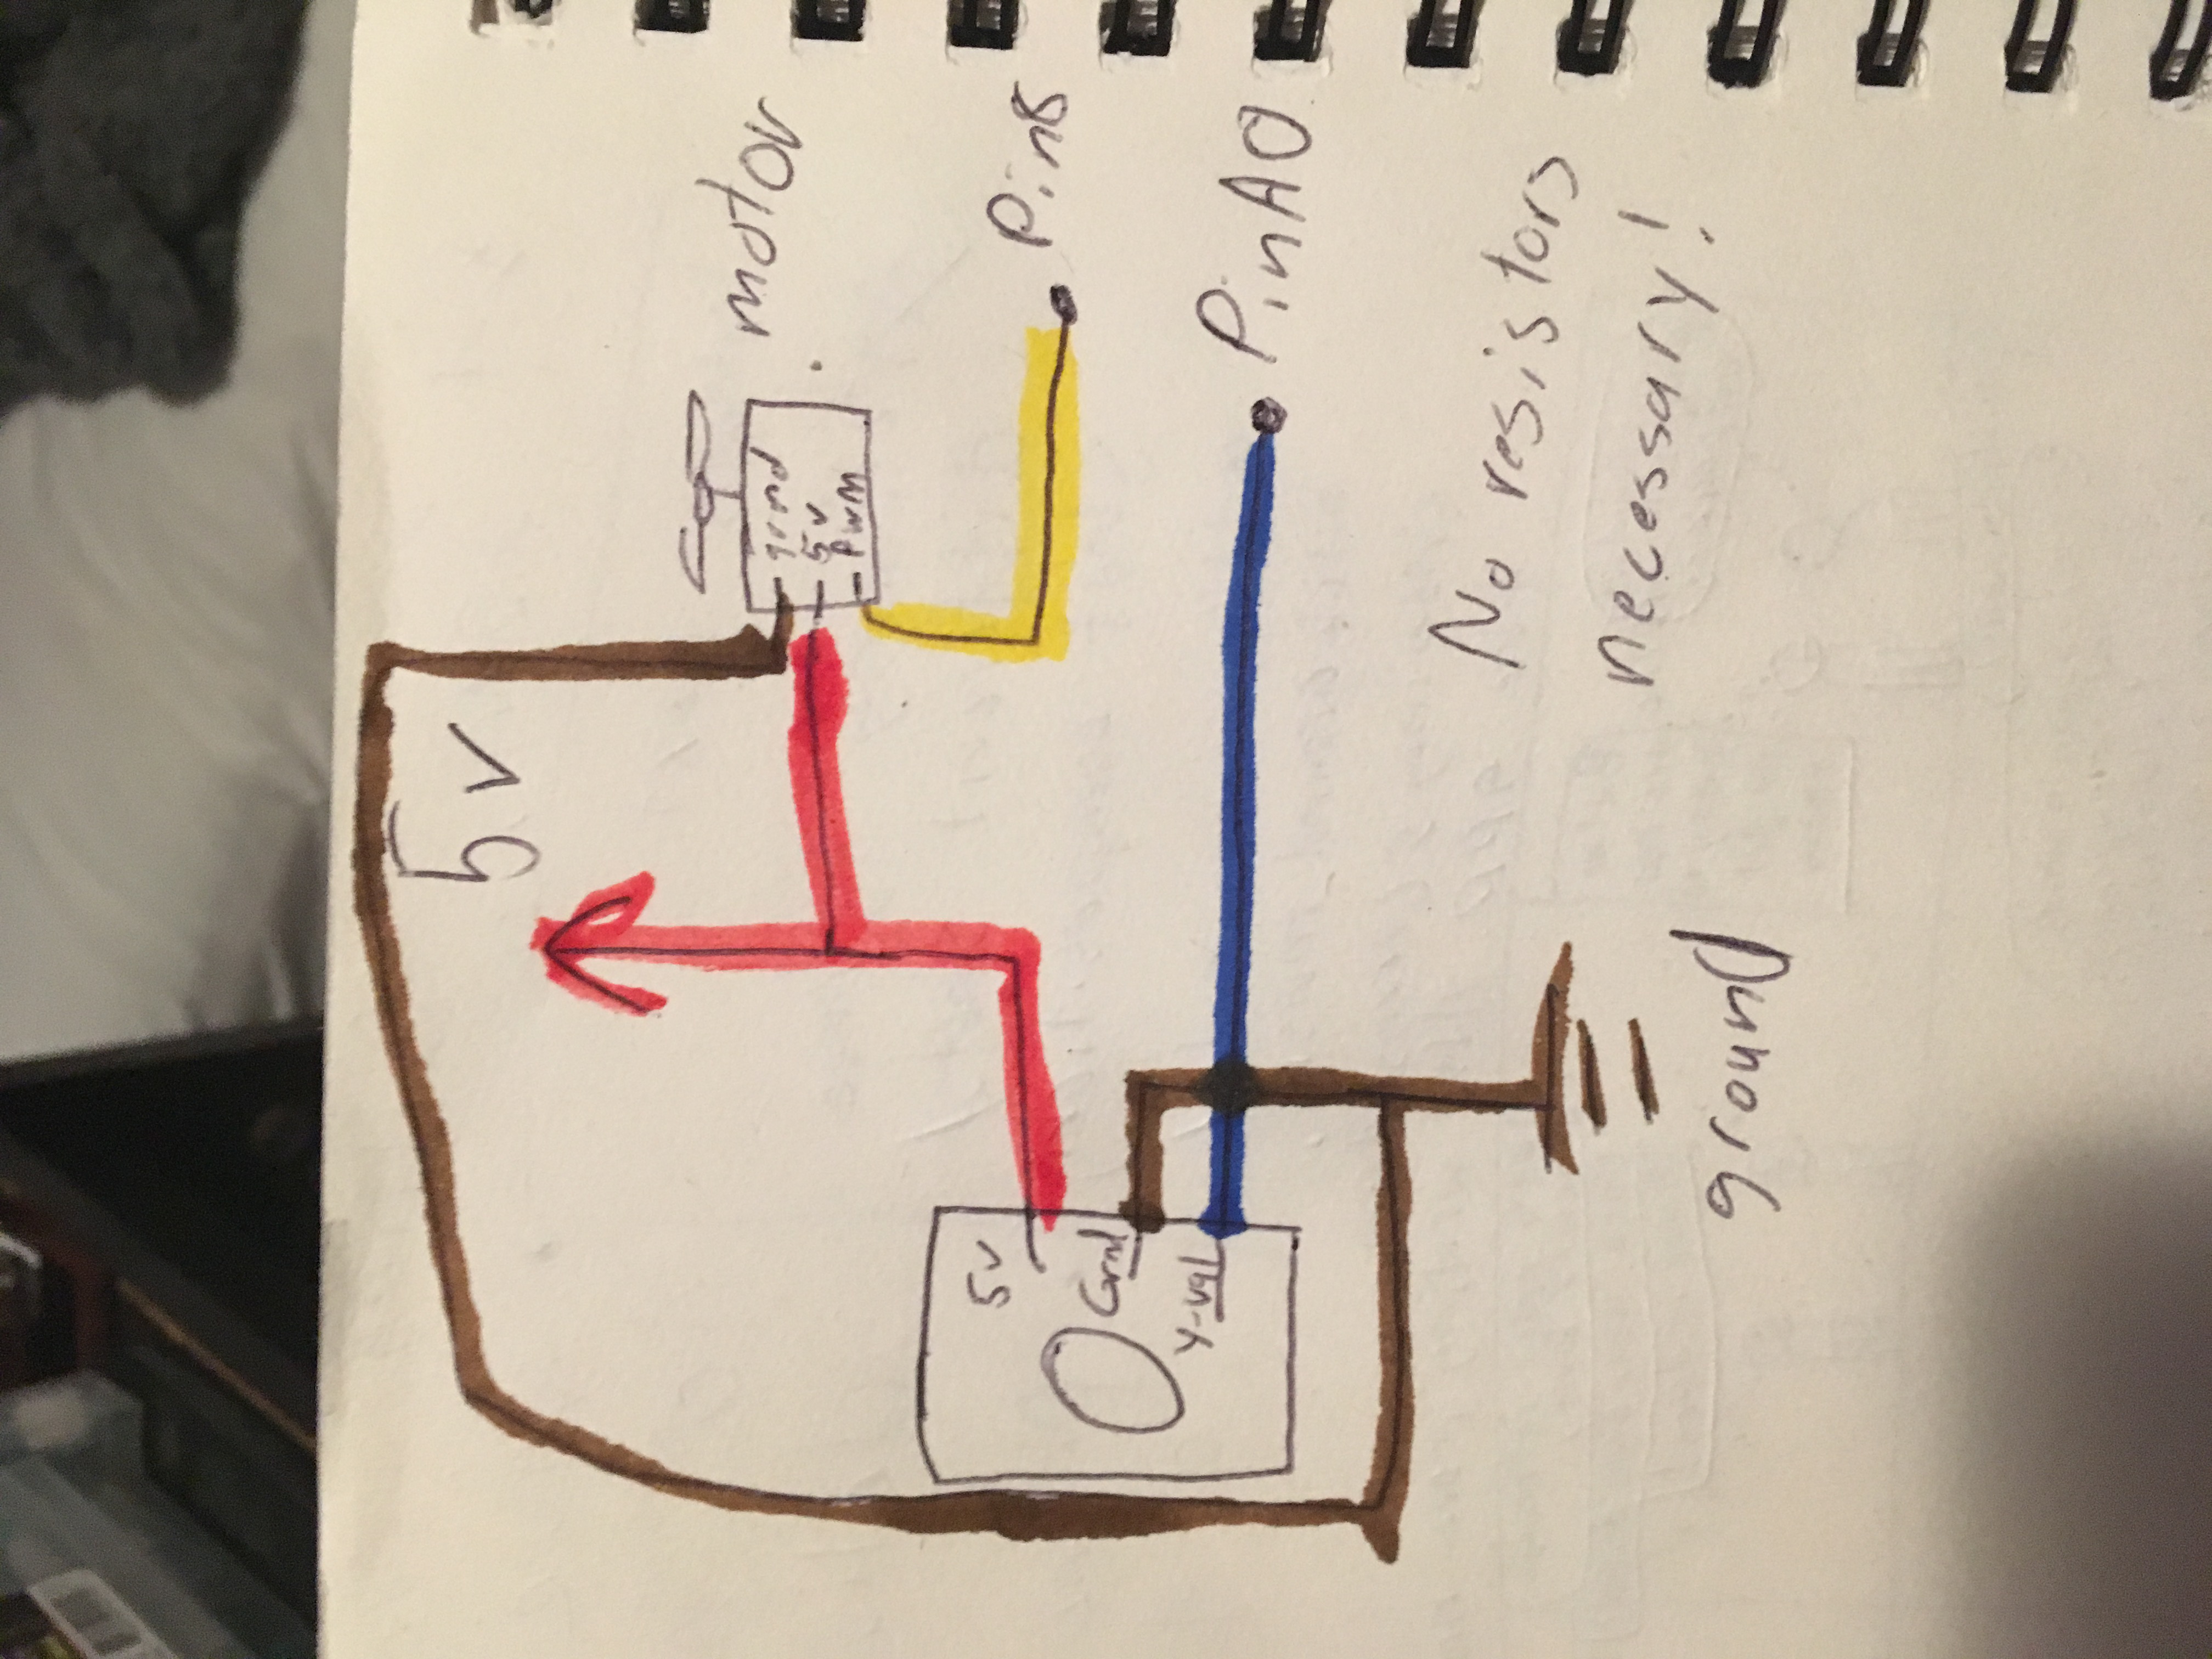 5v
motor
grnd
5v
Pwm
5v
Grnd
Y-val
Pin8
PinA0
No resistors
necessary!
ground